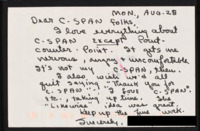 MON, AUG. 28
Dear C-SPAN Folks,
I love everything about
C-SPAN except Point-
counter-Point. It gets me
nervous, angry & uncomfortable
It's not my C-SPAN, then.
I also wish we'd all
quit saying "Thank you for
C-SPAN", "I love C-SPAN",
etc., taking up time. The
idea was great.
Keep up the fine work.
Sincerely,